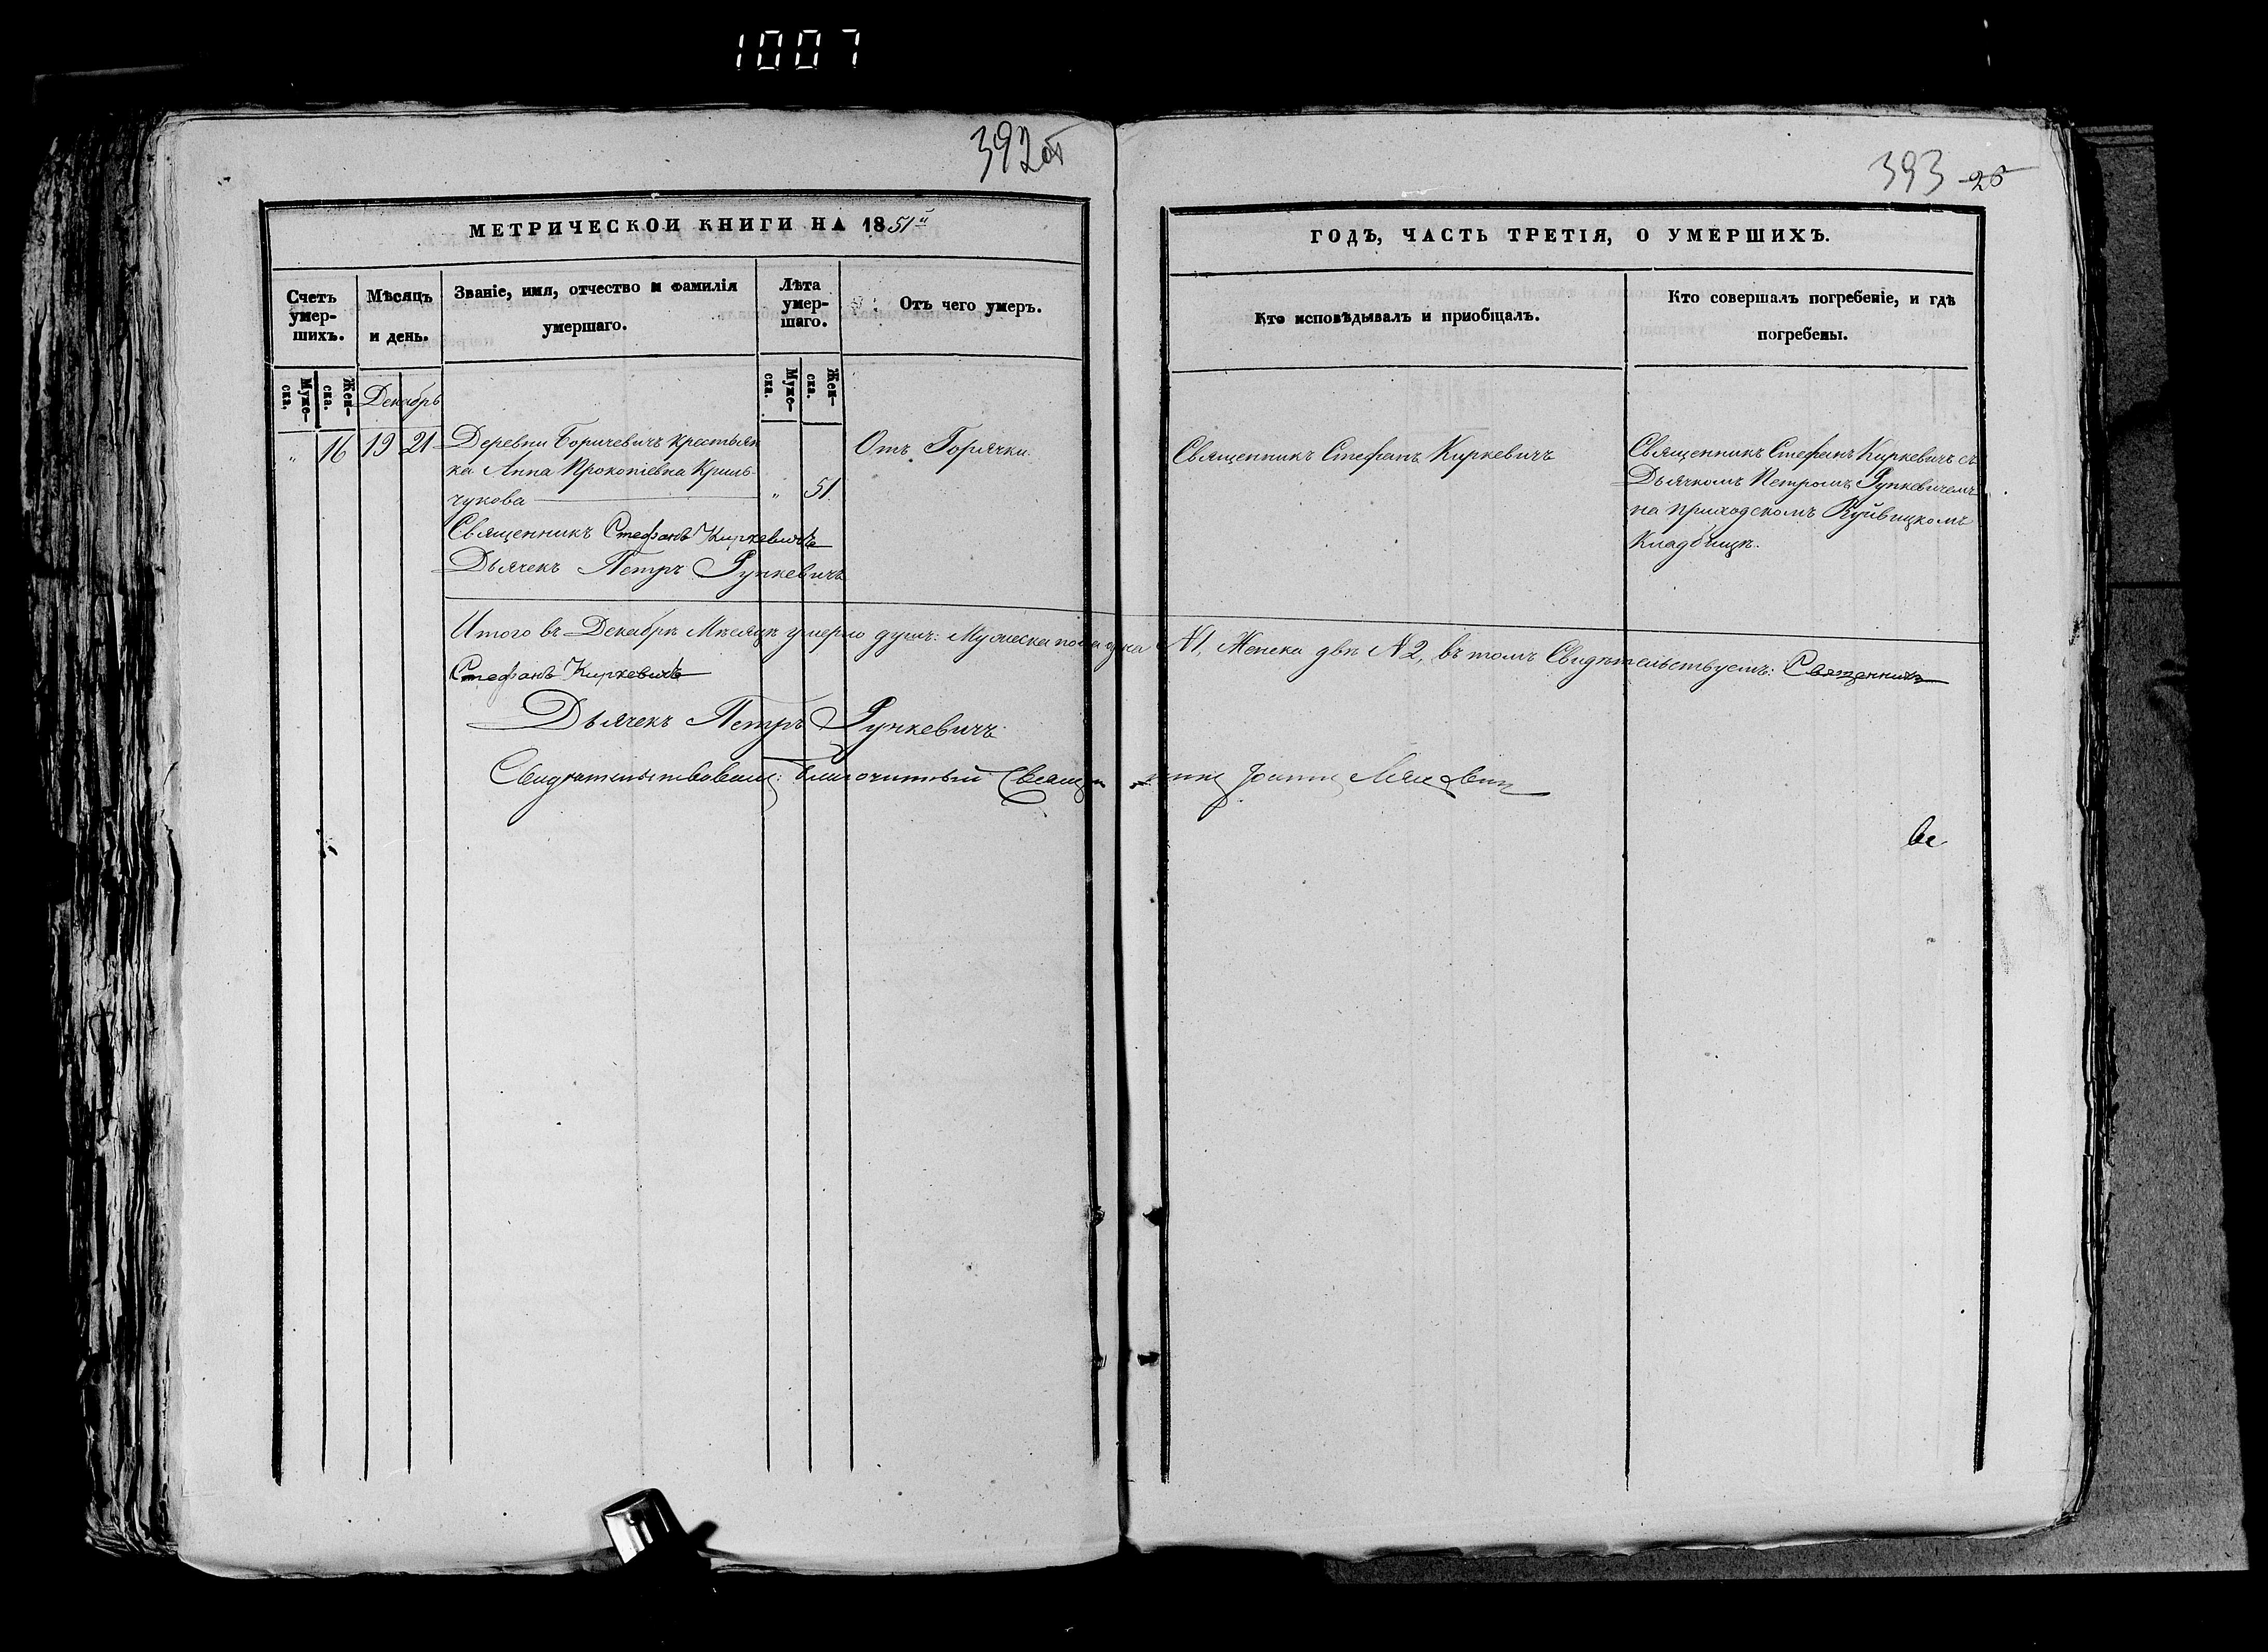 1007
392об
393 26
МЕТРИЧЕСКОЙ КНИГИ НА 1851й
ГОДЪ, ЧАСТЬ ТРЕТІЯ, О УМЕРШИХЪ.
Счетъ умер-шихъ.
Мѣсяцъ и день.
Званіе, имя, отчество и фамилія
умершаго.
Лѣта умер-шаго.
Отъ чего умеръ.
Кто исповѣдывалъ и приобщалъ.
Кто совершалъ погребеніе, и гдѣ
погребены.
Муже-ска.
Жен-ска.
Декабрь
Муже-ска.
Жен-ска.
" 16 19 21
Деревни Боричевичъ крестьян
ка Анна Прокопіевна Криль-
чукова
" 51.
Отъ Горячки
Священникъ Стефанъ Киркевичъ
Священникъ Стефанъ Киркевичъ съ
Дьячкомъ Петромъ Рункевичемъ
на приходскомъ
Кладбищѣ.
Священникъ Стефанъ Киркевичъ
Дьячекъ Петръ Рункевичъ
Итого въ Декабрѣ Мѣсяцѣ умерло душъ: Мужеска пола одна №1, Женска двѣ №2, въ томъ Свидѣтельствуемъ: Священникъ
Стефанъ Киркевичъ
Дьячекъ Петръ Рункевичъ
Свидѣтельствовалъ: Благочинный Священникъ Іоаннъ